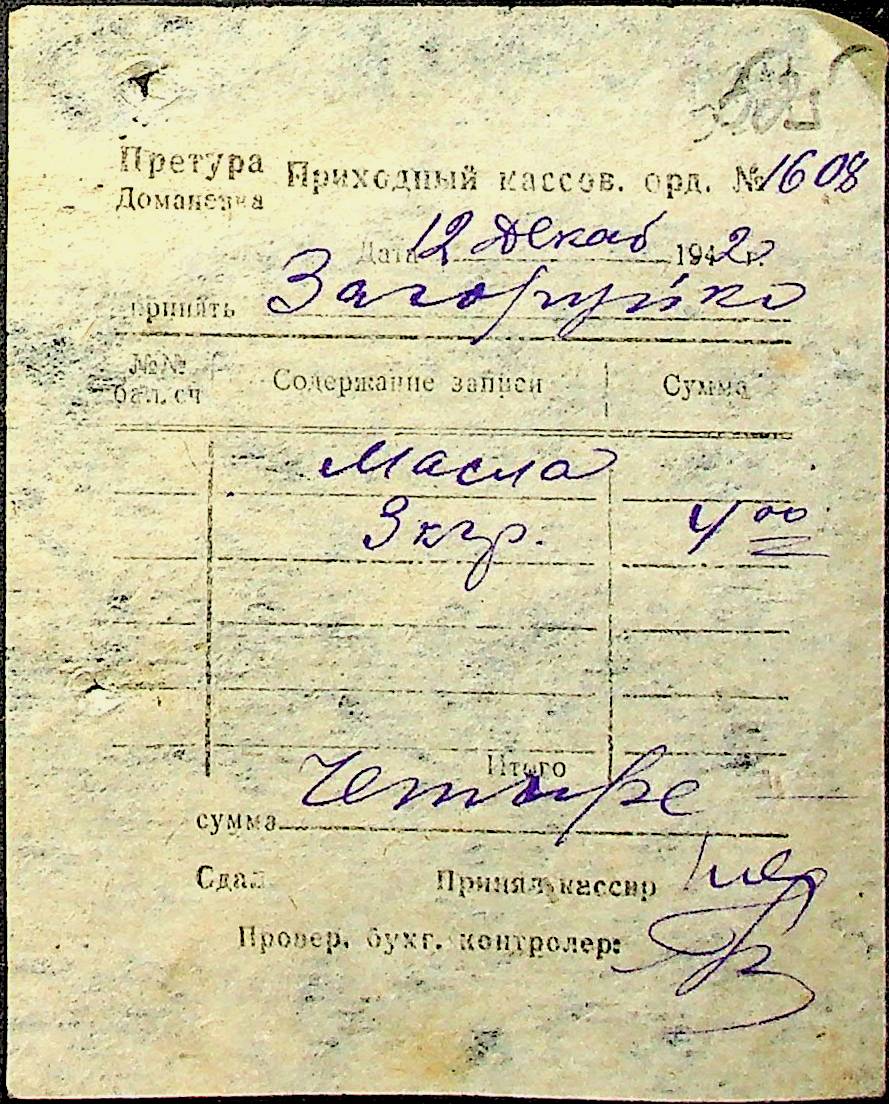 Претура Приходный кассов. орд. № 1608
Доманевка
Дата 12 Декаб 1942 г.
принять Загоруйко
№№ бал. сч Содержание записи Сумма
Масла
3 кгр. 4 00
Итого
сумма Четыре
Сдал Принял кассир
Провер. бухг. контролер: